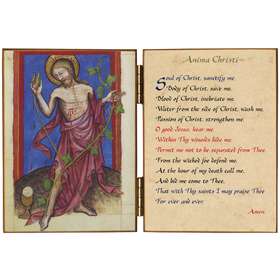 Anima Christi
Soul of Christ, sanctify me.
Body of Christ, save me.
Blood of Christ, inebriate me.
Water from the side of Christ, wash me.
Passion of Christ, strengthen me.
O good Jesus, hear me.
Within Thy wounds hide me.
Permit me not to be separated from Thee.
From the wicked foe defend me.
At the hour of my death call me.
And bid me come to Thee,
That with Thy saints I may praise Thee
For ever and ever.
Amen.